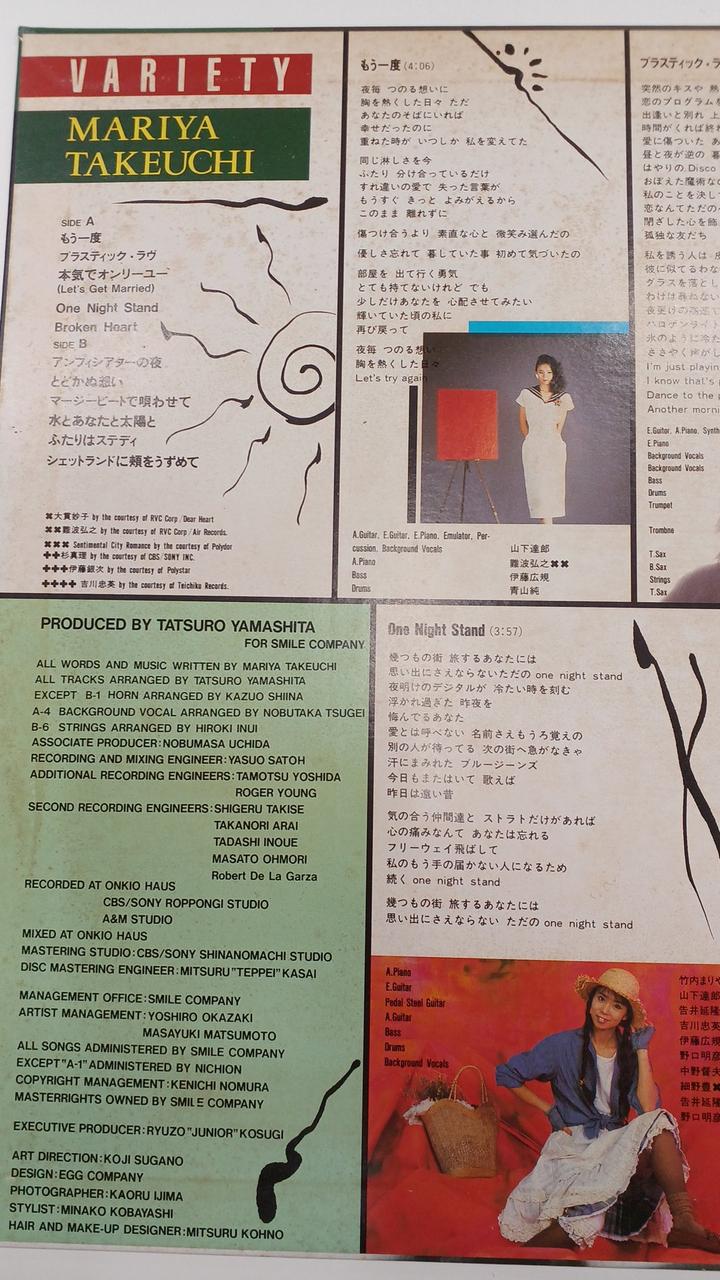 VARIETY
MARIYA
TAKEUCHI
SIDE A
もう一度
プラスティック・ラヴ
本気でオンリーユー
(Let's Get Married)
One Night Stand
Broken Heart
SIDE B
アンフィシアターの夜
とどかぬ想い
マージービートで唄わせて
水とあなたと太陽と
ふたりはステディ
シェットランドに頬をうずめて
✖大貫妙子 by the courtesy of RVC Corp/Dear Heart
✖✖難波弘之 by the courtesy of RVC Corp/Air Records.
✖✖✖ Sentimental City Romance by the courtesy of Polydor
✚✚杉真理 by the courtesy of CBS/SONY INC.
✚✚✚伊藤銀次 by the courtesy of Polystar
✚✚✚✚ 吉川忠英 by the courtesy of Teichiku Records.
もう一度 (4:06)
夜毎 つのる想いに
胸を熱くした日々 ただ
あなたのそばにいれば
幸せだったのに
重ねた時が いつしか 私を変えてた
同じ淋しさを今
ふたり 分け合っているだけ
すれ違いの愛で 失った言葉が
もうすぐ きっと よみがえるから
このまま 離れずに
傷つけ合うより 素直な心と 微笑み選んだの
優しさ忘れて 暮していた事 初めて気づいたの
部屋を 出て行く勇気
とても持てないけれど でも
少しだけあなたを 心配させてみたい
輝いていた頃の私に
再び戻って
夜毎 つのる想い
胸を熱くした日々
Let's try again
A.Guitar, E.Guitar, E.Piano, Emulator, Per-
cussion, Background Vocals
山下達郎
A.Piano
難波弘之✖✖
Bass
伊藤広規
Drums
青山純
プラスティック・ラ
突然のキスや 熱
恋のプログラム
出逢いと別れ 上
時間がくれば終
愛に傷ついた あ
昼と夜が逆の 暮
はやりの Disco
おぼえた魔術な
私のことを決し
恋なんてただの
閉ざした心を飾
孤独な友だち
私を誘う人は 皮
彼に似てるわな
グラスを落とし
わけは尋ねない
夜更けの高速で
ハロゲンライト
氷のように冷た
ささやく声がし
I'm just playin
I know that's
Dance to the p
Another morni
E.Guitar, A.Piano, Synth
E.Piano
Background Vocals
Background Vocals
Bass
Drums
Trumpet
Trombone
T.Sax
B.Sax
Strings
T.Sax
PRODUCED BY TATSURO YAMASHITA
FOR SMILE COMPANY
ALL WORDS AND MUSIC WRITTEN BY MARIYA TAKEUCHI
ALL TRACKS ARRANGED BY TATSURO YAMASHITA
EXCEPT B-1 HORN ARRANGED BY KAZUO SHIINA
A-4 BACKGROUND VOCAL ARRANGED BY NOBUTAKA TSUGEI
B-6 STRINGS ARRANGED BY HIROKI INUI
ASSOCIATE PRODUCER:NOBUMASA UCHIDA
RECORDING AND MIXING ENGINEER:YASUO SATOH
ADDITIONAL RECORDING ENGINEERS:TAMOTSU YOSHIDA
ROGER YOUNG
SECOND RECORDING ENGINEERS:SHIGERU TAKISE
TAKANORI ARAI
TADASHI INOUE
MASATO OHMORI
Robert De La Garza
RECORDED AT ONKIO HAUS
CBS/SONY ROPPONGI STUDIO
A&M STUDIO
MIXED AT ONKIO HAUS
MASTERING STUDIO:CBS/SONY SHINANOMACHI STUDIO
DISC MASTERING ENGINEER:MITSURU"TEPPEI"KASAI
MANAGEMENT OFFICE:SMILE COMPANY
ARTIST MANAGEMENT:YOSHIRO OKAZAKI
MASAYUKI MATSUMOTO
ALL SONGS ADMINISTERED BY SMILE COMPANY
EXCEPT"A-1"ADMINISTERED BY NICHION
COPYRIGHT MANAGEMENT:KENICHI NOMURA
MASTERRIGHTS OWNED BY SMILE COMPANY
EXECUTIVE PRODUCER:RYUZO"JUNIOR"KOSUGI
ART DIRECTION:KOJI SUGANO
DESIGN:EGG COMPANY
PHOTOGRAPHER:KAORU IJIMA
STYLIST:MINAKO KOBAYASHI
HAIR AND MAKE-UP DESIGNER:MITSURU KOHNO
One Night Stand (3:57)
幾つもの街 旅するあなたには
思い出にさえならないただの one night stand
夜明けのデジタルが 冷たい時を刻む
浮かれ過ぎた 昨夜を
悔んでるあなた
愛とは呼べない 名前さえもうろ覚えの
別の人が待ってる 次の街へ急がなきゃ
汗にまみれた ブルージーンズ
今日もまたはいて 歌えば
昨日は遠い昔
気の合う仲間達と ストラトだけがあれば
心の痛みなんて あなたは忘れる
フリーウェイ飛ばして
私のもう手の届かない人になるため
続く one night stand
幾つもの街 旅するあなたには
思い出にさえならない ただの one night stand
A.Piano
E.Guitar
Pedal Steel Guitar
A.Guitar
Bass
Drums
Background Vocals
竹内まりや
山下達郎
告井延隆
吉川忠英
伊藤広規
野口明彦
中野督夫
細野豊✖
告井延隆
野口明彦